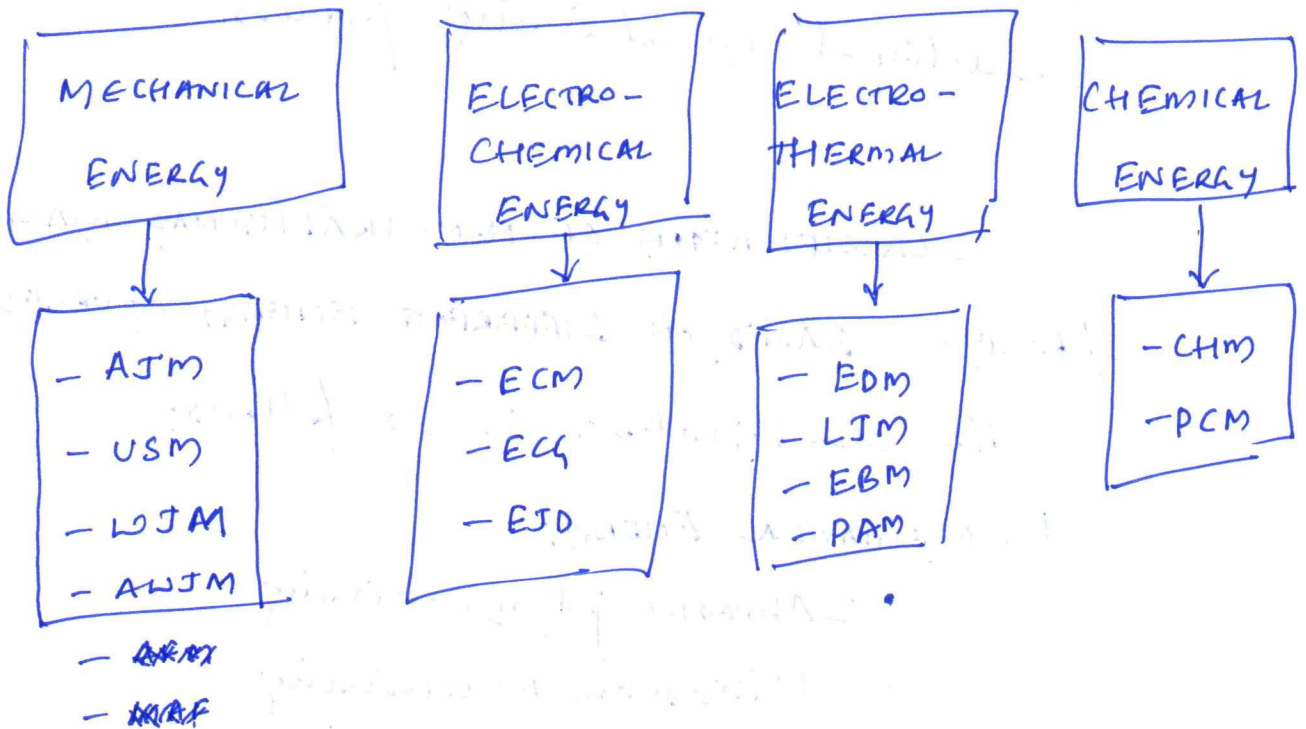 MECHANICAL
ENERGY
- AJM
- USM
- WJM
- AWJM
ELECTRO-
CHEMICAL
ENERGY
- ECM
- ECG
- EJD
ELECTRO-
THERMAL
ENERGY
- EDM
- LJM
- EBM
- PAM
CHEMICAL
ENERGY
- CHM
- PCM